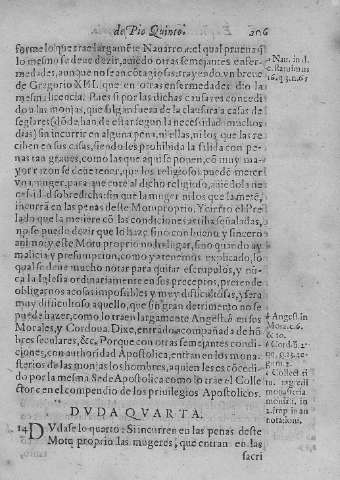 de Pio Quinto. 206
forme lo que trae largamẽte Nauarro: el qual prueua q̃
lo mesmo se deue dezir, auiẽdo otras semejantes enfer-
medades, aunque no sean cõtagiosas: trayendo vn breue
de Gregorio XIII. que en otras enfermedades dio la
mesma licencia. Pues si por las dichas causas es conce
dido a las monjas, que salgan fuera de la clausura a casas de
seglares (dõde han de estar segun la necessidad muchos
dias) sin incurrir en alguna pena, ni ellas, ni los que las re
ciben en sus casas, siendo les prohibida la salida con pe-
nas tan graues, como las que aqui se ponen, cõ muy ma-
yor razon se deue tener, que los religiosos puedẽ meter
vna muger, para que cure al dicho religioso, auiẽdo la ne
cessidad sobredicha: sin que la muger ni los que la metẽ,
incurra en las penas deste Motu proprio. Y cierto el Pre
lado que la metiere cõ las condiciones arriba señaladas,
no se puede dezir que lo haze sino con bueno y sincero
animo: y este Motu proprio no ha lugar, sino quando ay
malicia y presumpcion, como ya tenemos explicado, lo
qual se deue mucho notar para quitar escrupulos, y nũ-
ca la Iglesia ordinariamente en sus preceptos, pretende
obligarnos a cosas impossibles y muy dificultosas, y sera
muy dificultoso aquello, que sin gran detrimento no se
puede hazer, como lo traen largamente Angest. en sus
Morales, y Cordoua. Dixe, entrado acompañada de hõ
bres seculares, &c. Porque con otras semejantes condi
ciones, con authoridad Apostolica, entran en los mona-
sterios de las monjas los hombres, a quien les es cõcedi-
do por la mesma Sede Apostolica como lo trae el Colle
ctore en el compendio de los priuilegios Apostolicos.
Nau. in d.
c. statuimus
16. q. 1. n. 1
Angest. in
Mora. c. 6.
& 10.
Cord. õ. 2.
Collect. ti
monasteria
monial. in
2. imp. in an
notationi.
DVDA QVARTA.
14 DVdase lo quarto: Si incurren en las penas deste
Motu proprio las mugeres, que entran en las
sacri